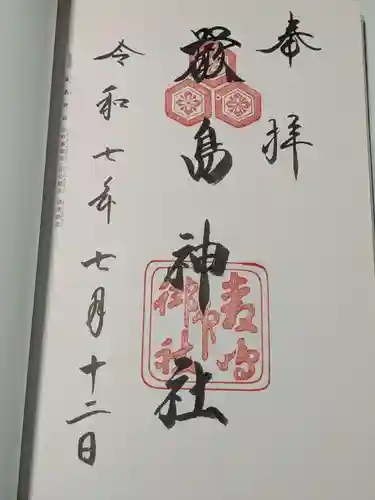 奉拝
厳島神社
令和七年七月十二日